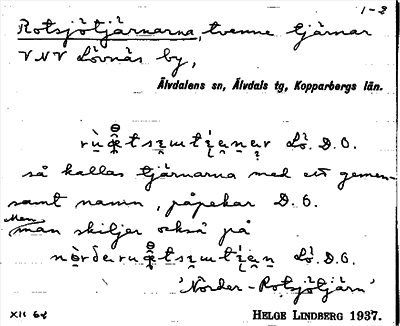 1-2
Rotsjötjärnarna, tvenne tjärnar
VNV Lövnäs by,
Älvdalens sn, Älvdals tg, Kopparbergs län.
Lö. D.O.
så kallas tjärnarna med ett gemen-
samt namn, påpekar D.O.
Men
man skiljer också på
Lö. D.O.
'Norder-Rotsjötjärn'
XII 64
HELGE LINDBERG 1937.